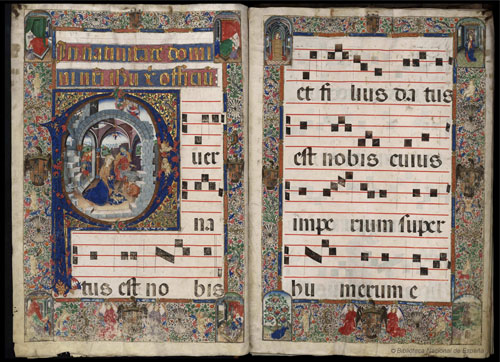 In natiuitate domi
ni
Puer
na
tus est no bis
et fi lius da tus
est nobis cuius
impe rium super
hu merum e
© Biblioteca Nacional de España